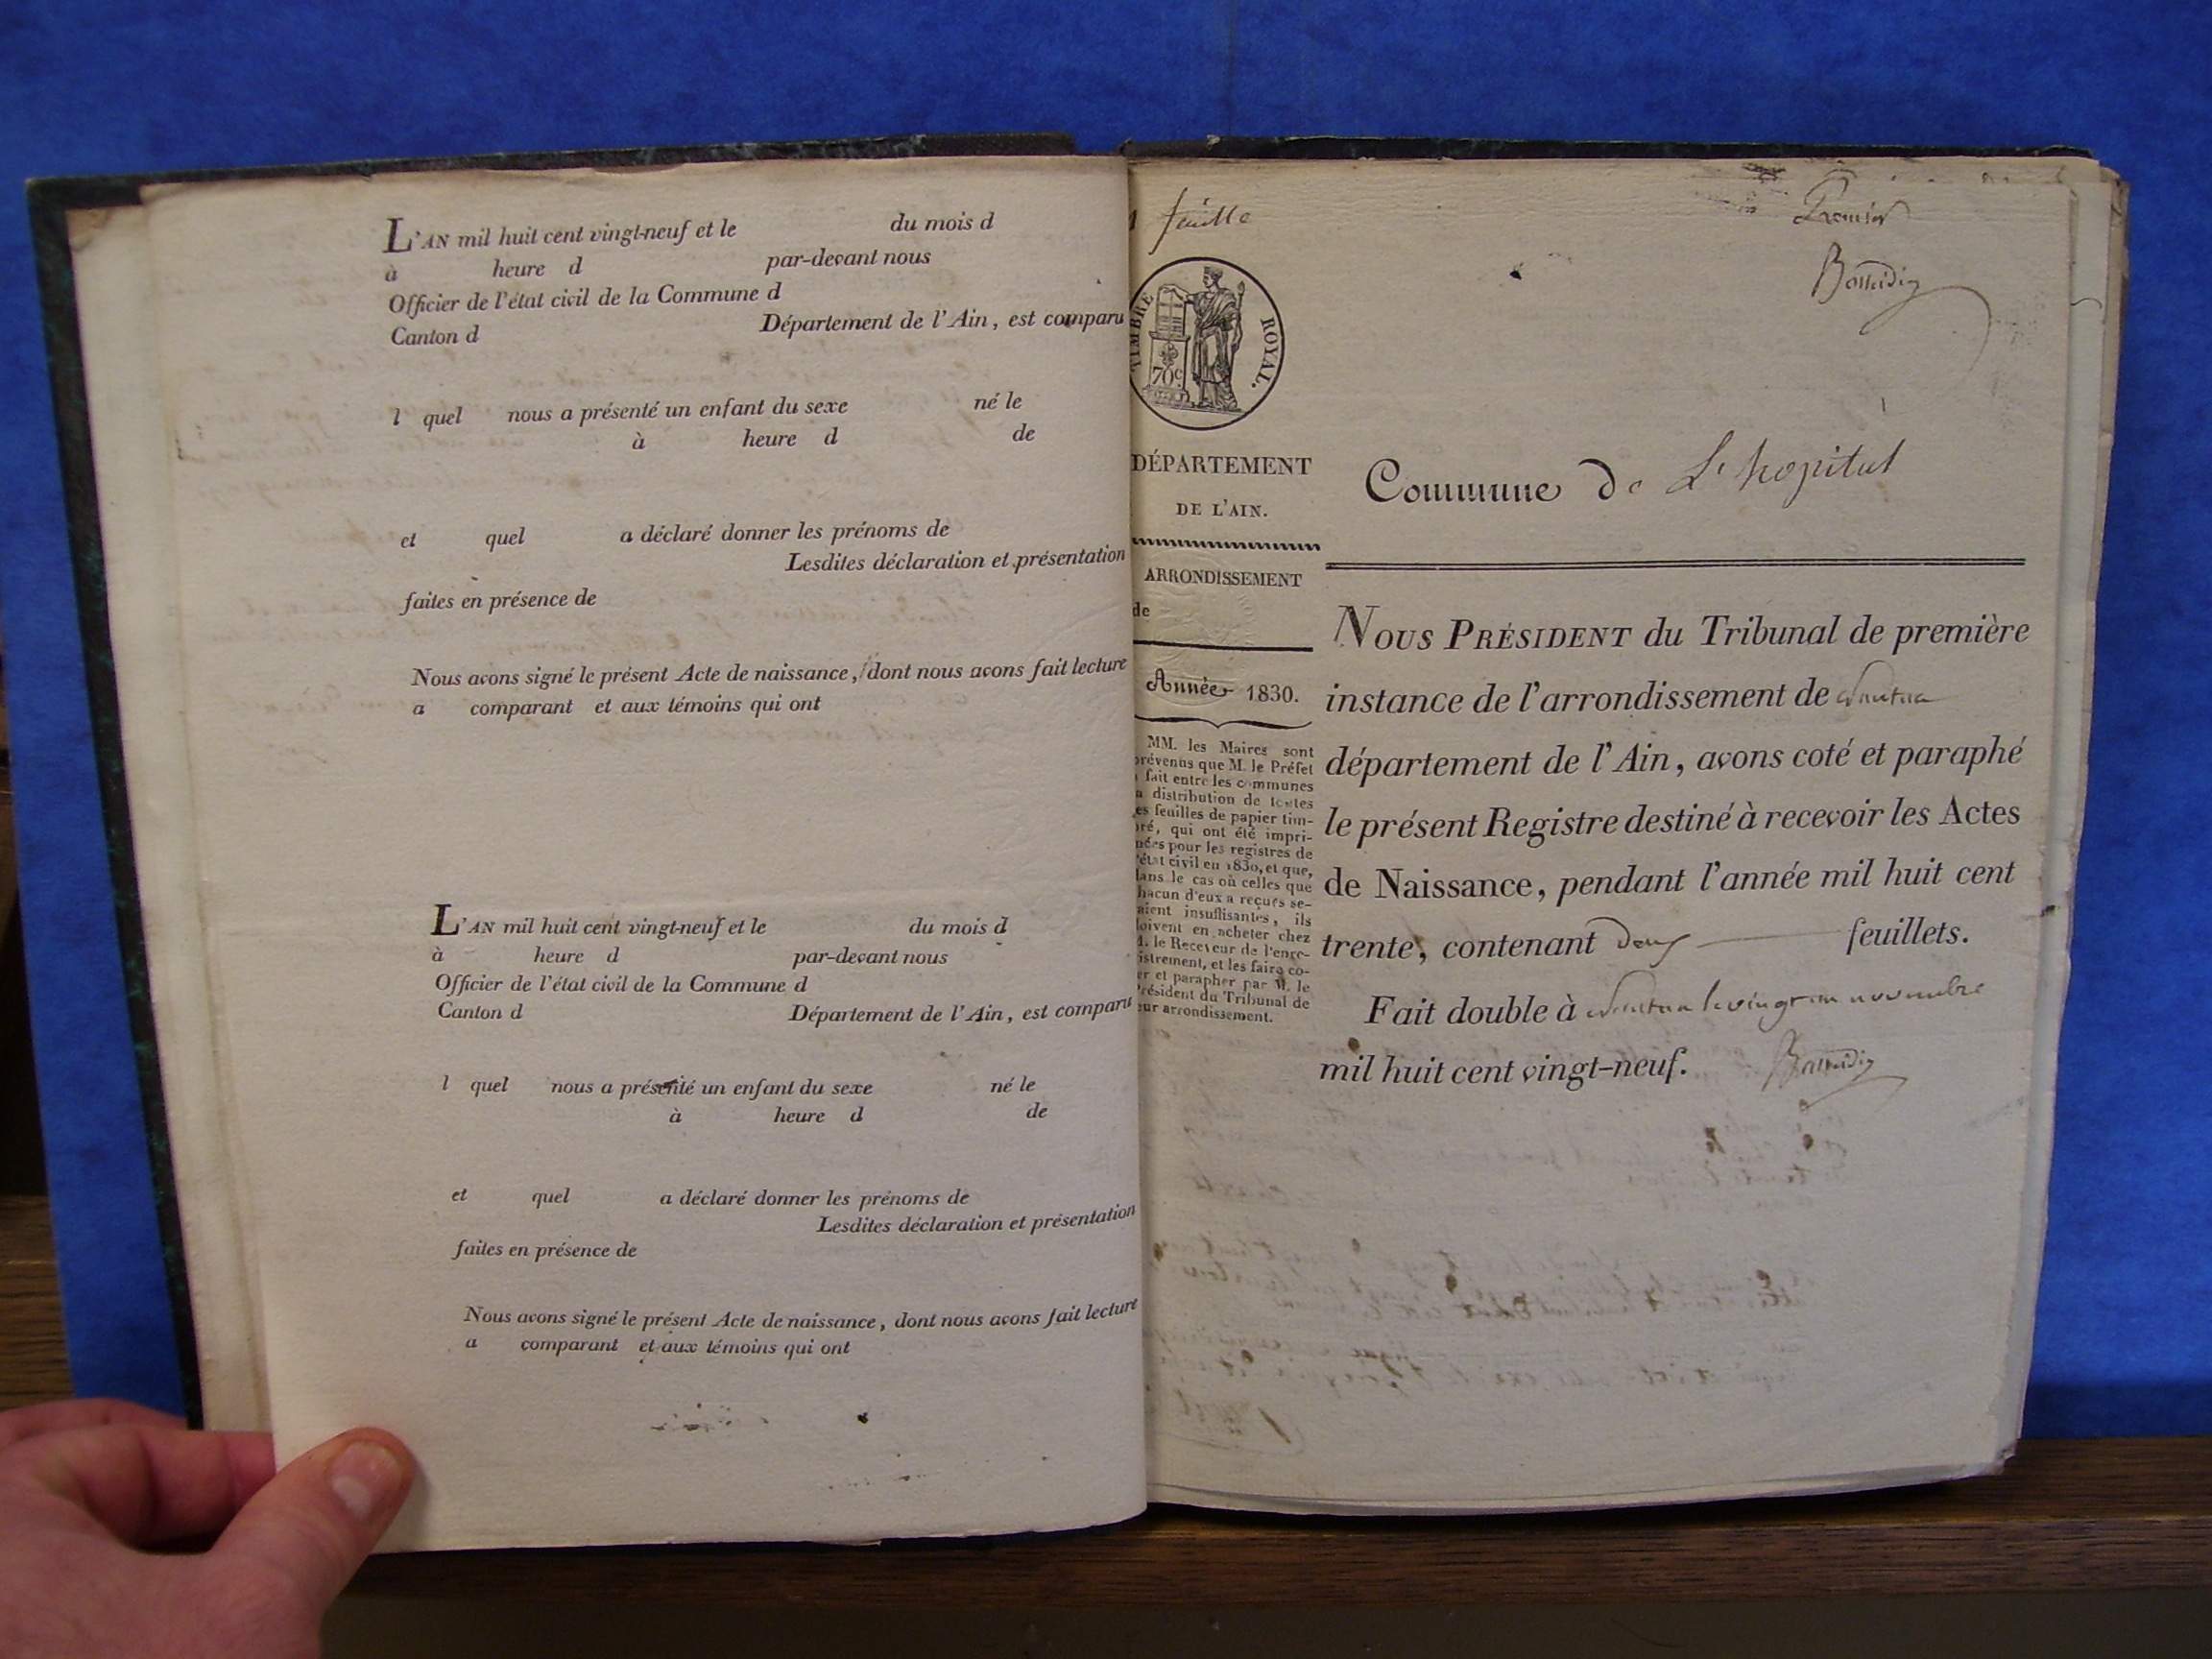 L'AN mil huit cent vingt-neuf et le du mois d
à heure d par-devant nous
Officier de l'état civil de la Commune d
Canton d Département de l'Ain, est comparu
l quel nous a présenté un enfant du sexe né le
à heure d de
et quel a déclaré donner les prénoms de
Lesdites déclaration et présentation
faites en présence de
Nous avons signé le présent Acte de naissance, dont nous avons fait lecture
a comparant et aux témoins qui ont
L'AN mil huit cent vingt-neuf et le du mois d
à heure d par-devant nous
Officier de l'état civil de la Commune d
Canton d Département de l'Ain, est comparu
l quel nous a présenté un enfant du sexe né le
à heure d de
et quel a déclaré donner les prénoms de
Lesdites déclaration et présentation
faites en présence de
Nous avons signé le présent Acte de naissance, dont nous avons fait lecture
a comparant et aux témoins qui ont
1 feuille
Premier
TIMBRE ROYAL.
70c.
DÉPARTEMENT
DE L'AIN.
ARRONDISSEMENT
de
Année 1830.
MM. les Maires sont
prévenus que M. le Préfet
a fait entre les communes
la distribution de toutes
les feuilles de papier tim-
bré, qui ont été impri-
mées pour les registres de
l'état civil en 1830, et que,
dans le cas où celles que
chacun d'eux a reçues se-
raient insuffisantes, ils
doivent en acheter chez
M. le Receveur de l'enre-
gistrement, et les faire co-
ter et parapher par M. le
Président du Tribunal de
leur arrondissement.
Commune de L'hopital
NOUS PRÉSIDENT du Tribunal de première
instance de l'arrondissement de Nantua
département de l'Ain, avons coté et paraphé
le présent Registre destiné à recevoir les Actes
de Naissance, pendant l'année mil huit cent
trente, contenant deux feuillets.
Fait double à Nantua le vingt un novembre
mil huit cent vingt-neuf.